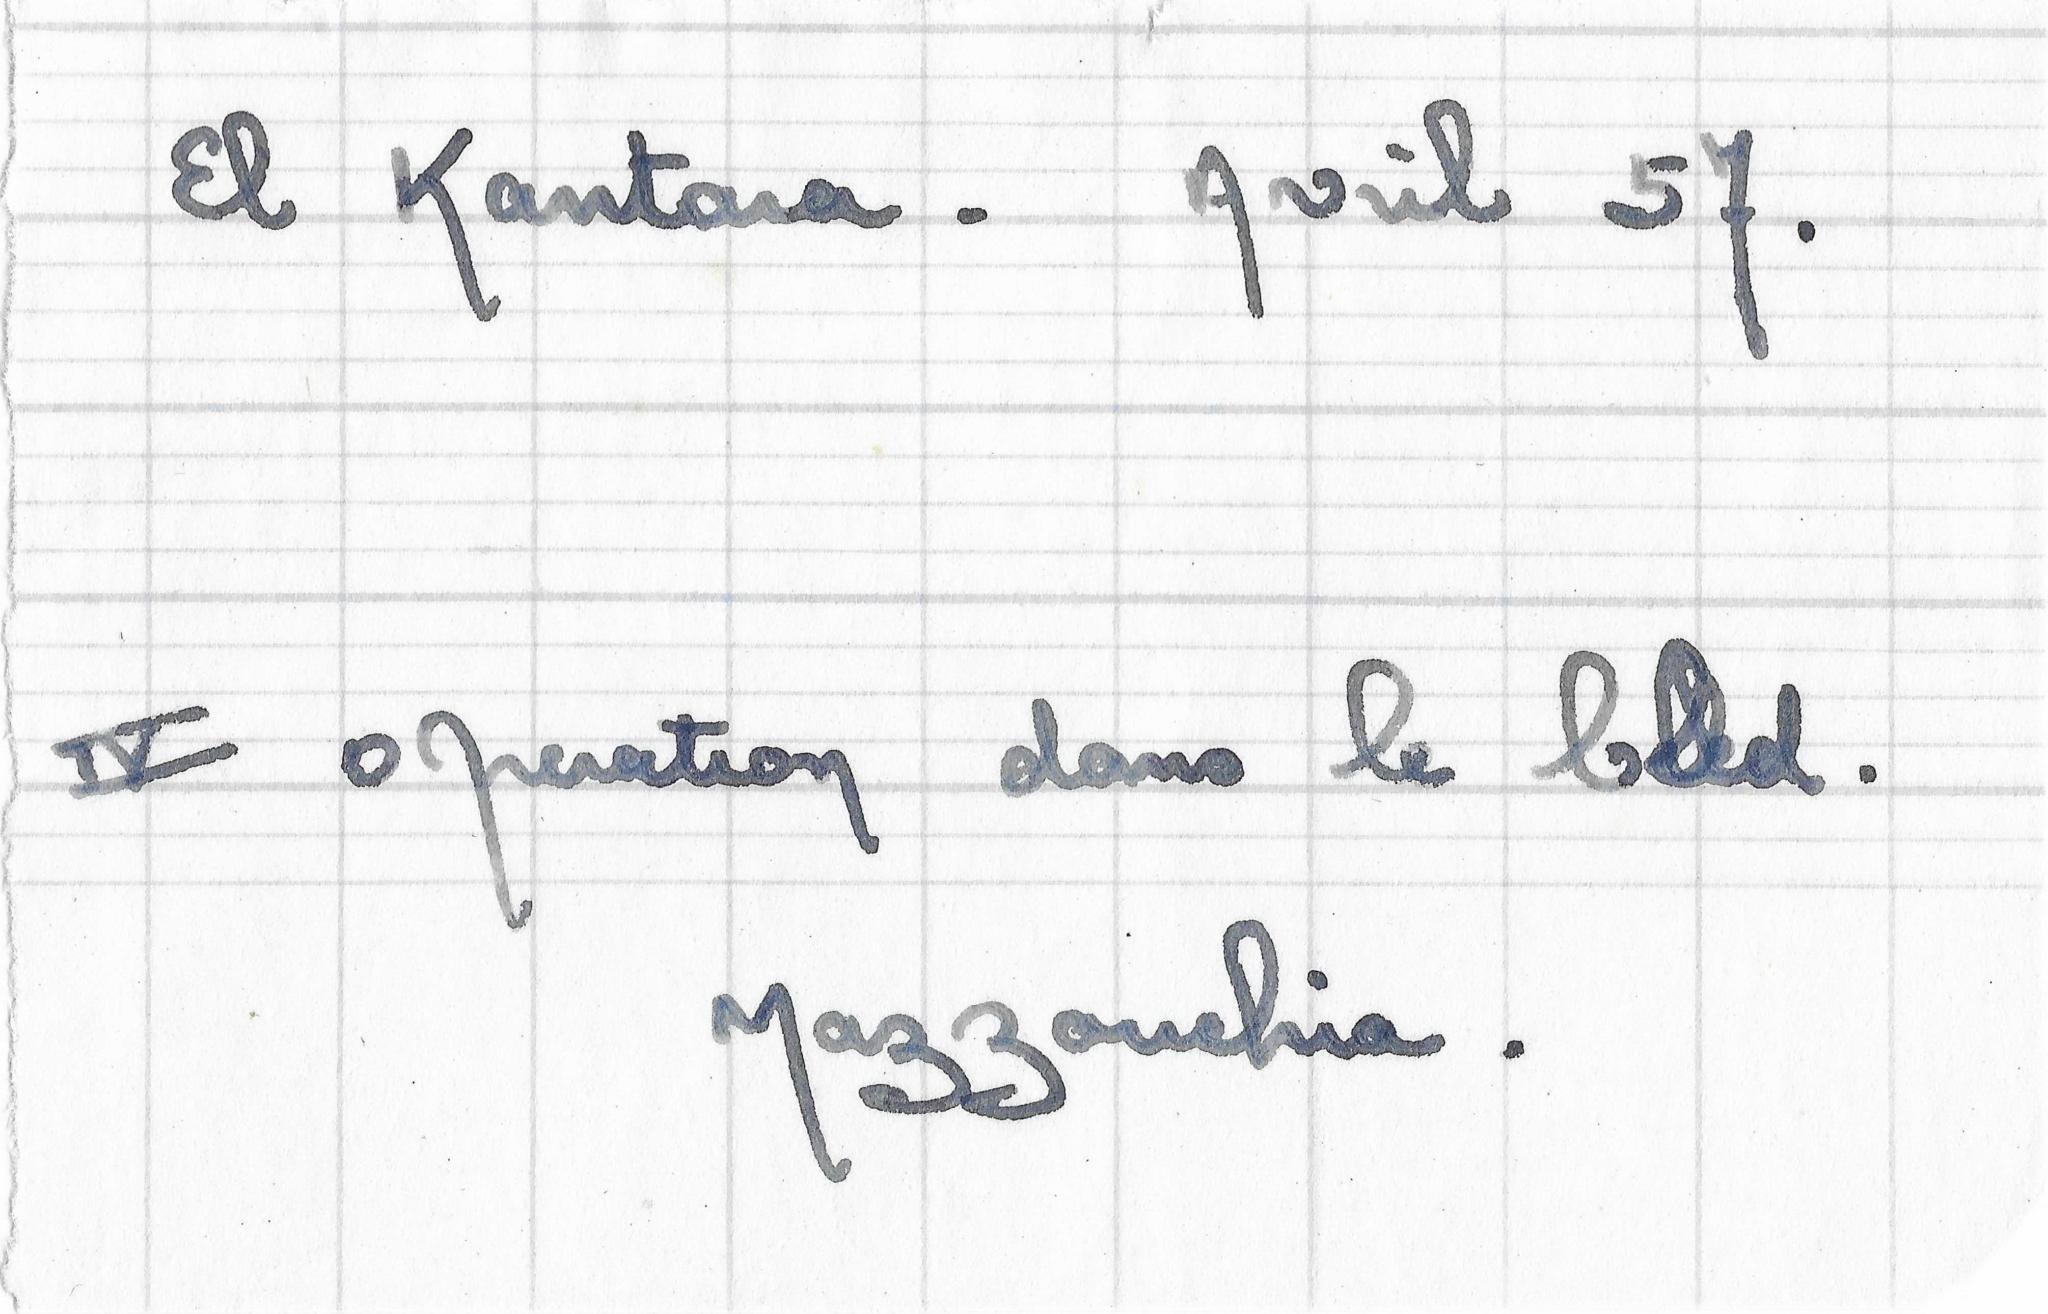 El Kantara. Avril 57.
IV operation dans le bled.
Mazzouchia.